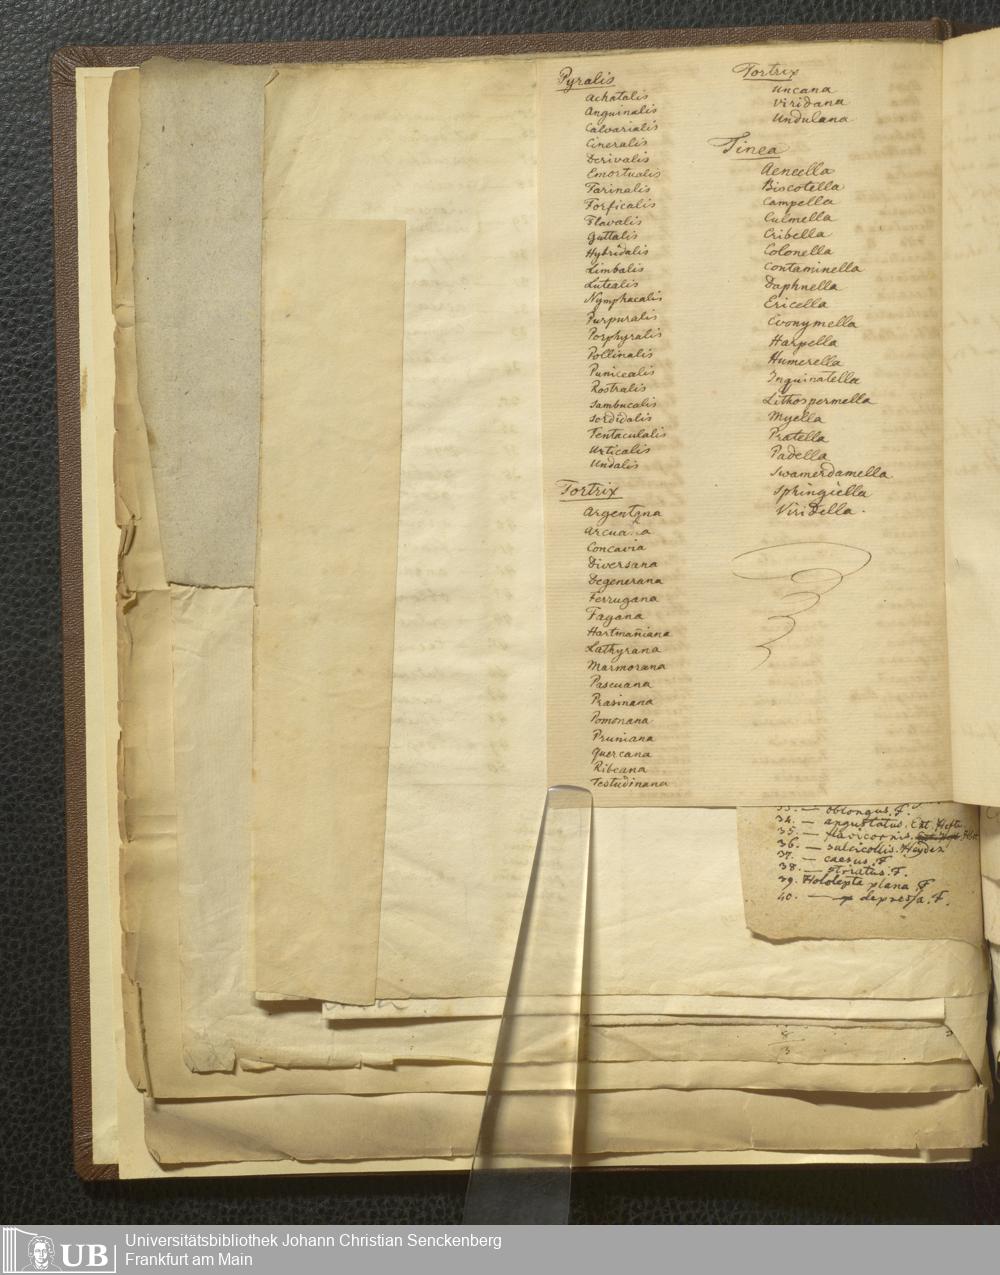 Pyralis
Achatalis
Anguinalis
Calvarialis
Cineralis
Derivalis
Emortualis
Farinalis
Forficalis
Flavalis
Guttalis
Hybridalis
Limbalis
Lutealis
Nymphacalis
Purpuralis
Porphyralis
Pollinalis
Punicealis
Rostralis
Sambucalis
Sordidalis
Tentaculalis
Urticalis
Undalis
Tortrix
Argentana
Arcuana
Concavia
Diversana
Degenerana
Ferrugana
Fagana
Hartmañiana
Lathyrana
Marmorana
Pascuana
Prasinana
Pomonana
Pruniana
Quercana
Ribeana
Testudinana
Tortrix
Uncana
Viridana
Undulana
Tinea
Aeneella
Biscotella
Campella
Culmella
Cribella
Colonella
Contaminella
Daphnella
Ericella
Evonymella
Harpella
Humerella
Inquinatella
Lithospermella
Myella
Pratella
Padella
Swamerdamella
Springiella
Viridella.
33. — oblongus. F.
34. — angustatus. Ent. Hefte
35. — flavicornis.
36. — sulcicollis. Heyden
37. — caesus. F
38. — striatus. F.
39. Hololepta plana F
40. — depressa. F.
UB
Universitätsbibliothek Johann Christian Senckenberg
Frankfurt am Main